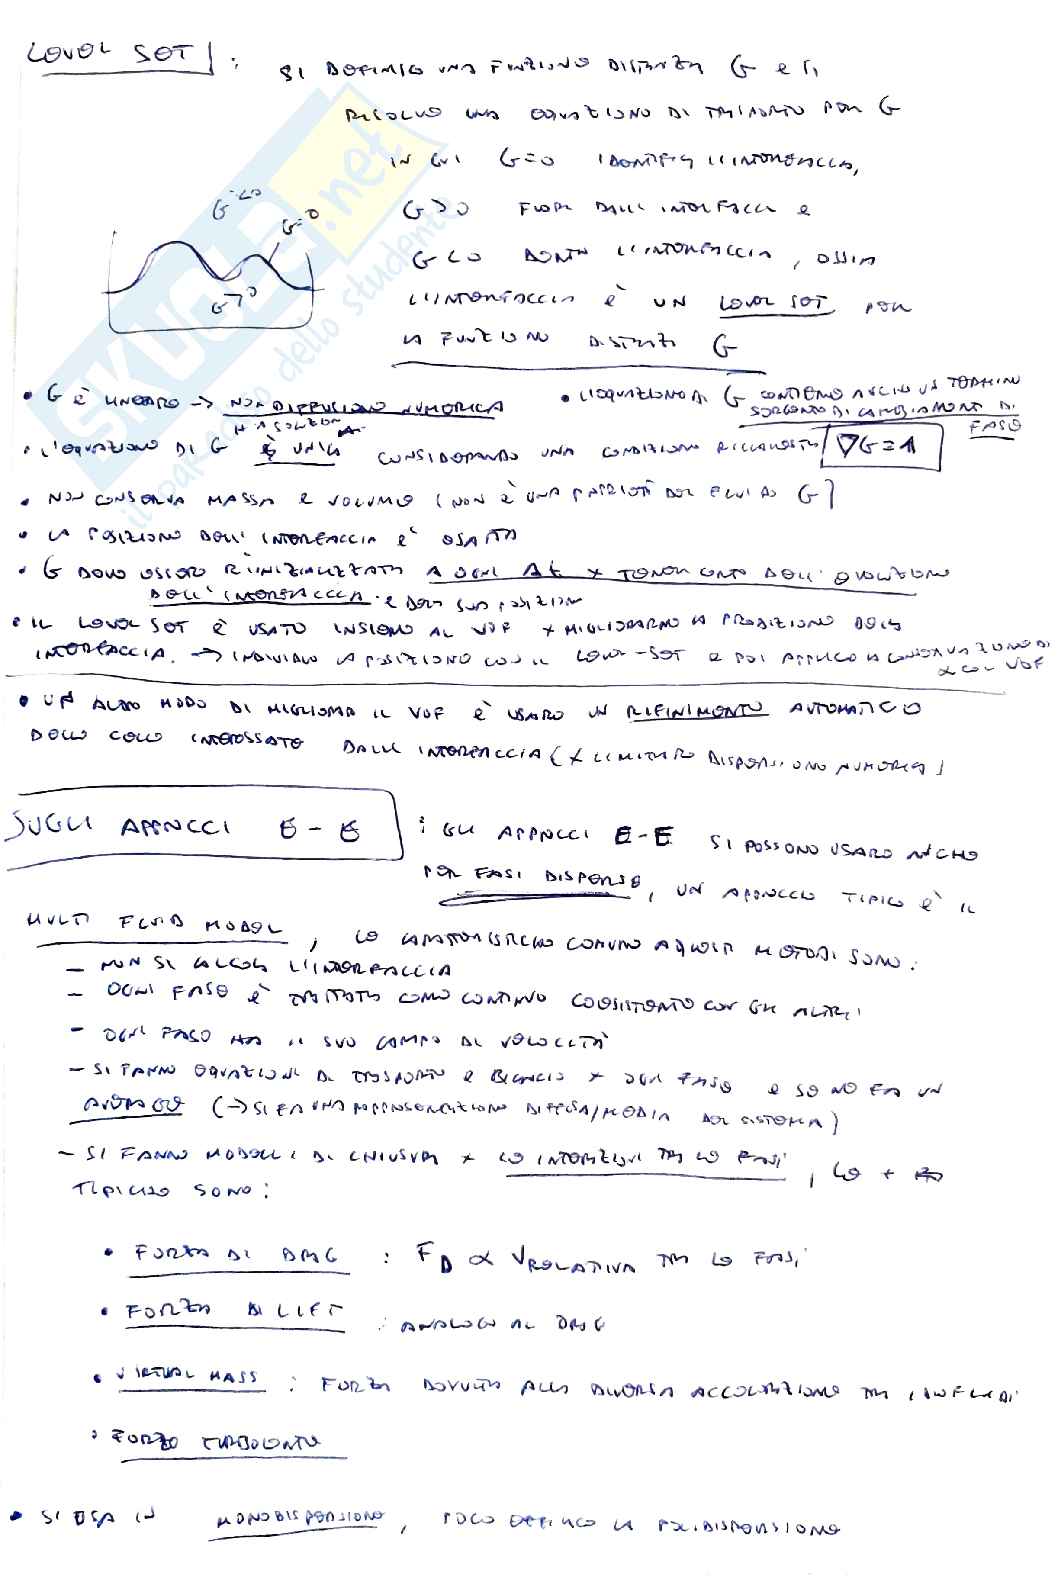 LEVEL SET : SI DEFINISCE UNA FUNZIONE DISTANZA G e si
RISOLVE UNA EQUAZIONE DI TRASPORTO PER G
IN CUI G=0 IDENTIFICA L'INTERFACCIA,
G>0 FUORI DALL'INTERFACCIA e
G<0 DENTRO L'INTERFACCIA, OSSIA
L'INTERFACCIA È UN LEVEL SET PER
LA FUNZIONE DISTANZA G
G<0
G=0
G>0
• G È LINEARE → NON DIFFUSIONE NUMERICA
• L'EQUAZIONE DI G CONTIENE ANCHE UN TERMINE
SORGENTE DI CAMBIAMENTO DI
FASE
• L'EQUAZIONE DI G HA SOLUZIONE UNICA CONSIDERANDO UNA CONDIZIONE ∇G=1
• NON CONSERVA MASSA E VOLUME (NON È UNA PROPRIETÀ DEL FLUIDO G)
• LA POSIZIONE DELL'INTERFACCIA È ESATTA
• G DEVE ESSERE REINIZIALIZZATA A OGNI Δt × TENER CONTO DELL'EVOLUZIONE
DELL'INTERFACCIA e DELLA SUA POSIZIONE
• IL LEVEL SET È USATO INSIEME AL VOF × MIGLIORARNE LA PREDIZIONE DELLA
INTERFACCIA. → INDIVIDUO LA POSIZIONE CON IL LEVEL-SET E POI APPLICO LA CONSERVAZIONE DI
α COL VOF
• UN ALTRO MODO DI MIGLIORARE IL VOF È USARE UN RIFINIMENTO AUTOMATICO
DELLE CELLE INTERESSATE DALL'INTERFACCIA (× LIMITARE DISPERSIONE NUMERICA)
SUGLI APPROCCI E-E : GLI APPROCCI E-E SI POSSONO USARE ANCHE
PER FASI DISPERSE, UN APPROCCIO TIPICO È IL
MULTI FLUID MODEL, LE CARATTERISTICHE COMUNI A QUESTI METODI SONO:
– NON SI CALCOLA L'INTERFACCIA
– OGNI FASE È TRATTATA COME CONTINUO COESISTENTE CON GLI ALTRI
– OGNI FASE HA IL SUO CAMPO DI VELOCITÀ
– SI FANNO EQUAZIONI DI TRASPORTO E BILANCIO × OGNI FASE E SE NE FA UN
AVERAGE (→ SI FA UNA RAPPRESENTAZIONE DIFFUSA/MEDIA DEL SISTEMA)
– SI FANNO MODELLI DI CHIUSURA × LE INTERAZIONI TRA LE FASI, LE +
TIPICHE SONO:
• FORZA DI DRAG : F_D ∝ V_RELATIVA TRA LE FASI
• FORZA DI LIFT : ANALOGO AL DRAG
• VIRTUAL MASS : FORZA DOVUTA ALLA DIVERSA ACCELERAZIONE TRA I DUE FLUIDI
• FORZE TURBOLENTE
• SI USA IN MONODISPERSIONE, POCO EFFICACE LA POLIDISPERSIONE
SKUOLA.net
il paradiso dello studente